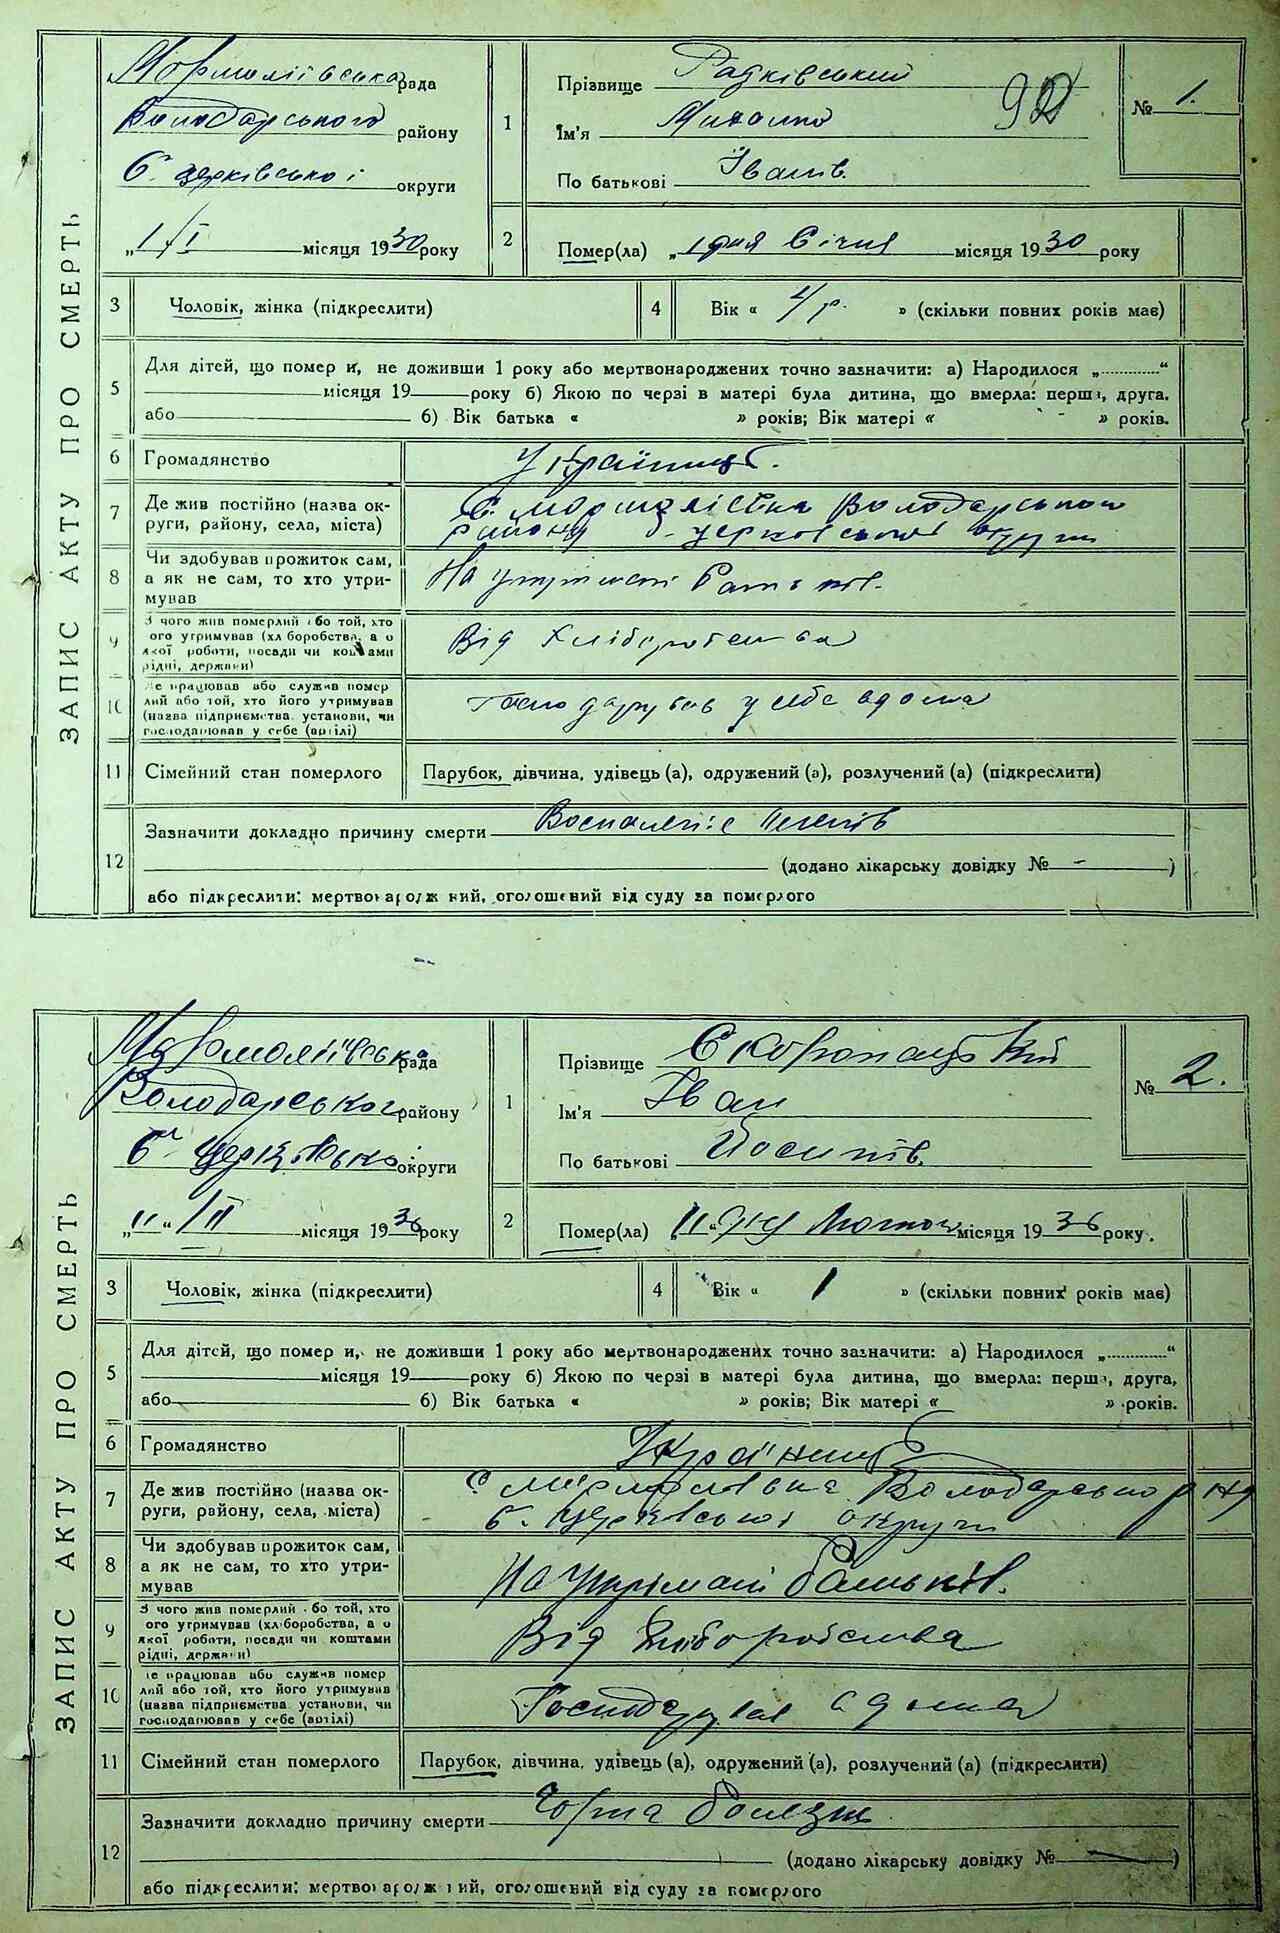 ЗАПИС АКТУ ПРО СМЕРТЬ
рада
Володарського району
Б. Церківської округи
"1/I місяця 1930 року
1
Прізвище Радківський
Ім'я Михайло
По батькові Іванів.
92
№ 1.
2
Помер(ла) „1 дня Січня місяця 1930 року
3
Чоловік, жінка (підкреслити)
4
Вік « 4 р. » (скільки повних років має)
5
Для дітей, що помер и, не доживши 1 року або мертвонароджених точно зазначити: а) Народилося „............“
місяця 19 року б) Якою по черзі в матері була дитина, що вмерла: перша, друга.
або 6) Вік батька « » років; Вік матері « » років.
6
Громадянство
Українец.
7
Де жив постійно (назва округи, району, села, міста)
Володарського
району Б-церковської округи
8
Чи здобував прожиток сам, а як не сам, то хто утримував
На утриманні батьків.
9
З чого жив померлий або той, хто ого утримував (хліборобства, а о якої роботи, посади чи коштами рідні, держави)
Від хліборобства
10
Де працював або служив помер лий або той, хто його утримував (назва підприємства установи, чи господарював у себе (артілі)
Господарував у себе вдома
11
Сімейний стан померлого
Парубок, дівчина, удівець (а), одружений (а), розлучений (а) (підкреслити)
12
Зазначити докладно причину смерти Воспаленіє легенів
(додано лікарську довідку № - )
або підкреслити: мертвонароджений, оголошений від суду за померлого
ЗАПИС АКТУ ПРО СМЕРТЬ
рада
Володарського району
Б. Церківської округи
„11“ /II місяця 1930 року
1
Прізвище Скоропацький
Ім'я Іван
По батькові Йосипів.
№ 2.
2
Помер(ла) „11“ дня Лютого місяця 1930 року.
3
Чоловік, жінка (підкреслити)
4
Вік « 1 » (скільки повних років має)
5
Для дітей, що помер и, не доживши 1 року або мертвонароджених точно зазначити: а) Народилося „............“
місяця 19 року б) Якою по черзі в матері була дитина, що вмерла: перша, друга,
або 6) Вік батька « » років; Вік матері « » років.
6
Громадянство
Українец
7
Де жив постійно (назва округи, району, села, міста)
Володарського р-ну
Б. Церківської округи
8
Чи здобував прожиток сам, а як не сам, то хто утримував
На утриманні батьків.
9
З чого жив померлий або той, хто ого утримував (хліборобства, а о якої роботи, посади чи коштами рідні, держави)
Від хліборобства
10
Де працював або служив помер лий або той, хто його утримував (назва підприємства установи, чи господарював у себе (артілі)
Господарував вдома
11
Сімейний стан померлого
Парубок, дівчина, удівець (а), одружений (а), розлучений (а) (підкреслити)
12
Зазначити докладно причину смерти Чорна болезнь
(додано лікарську довідку № — )
або підкреслити: мертвонароджений, оголошений від суду за померлого